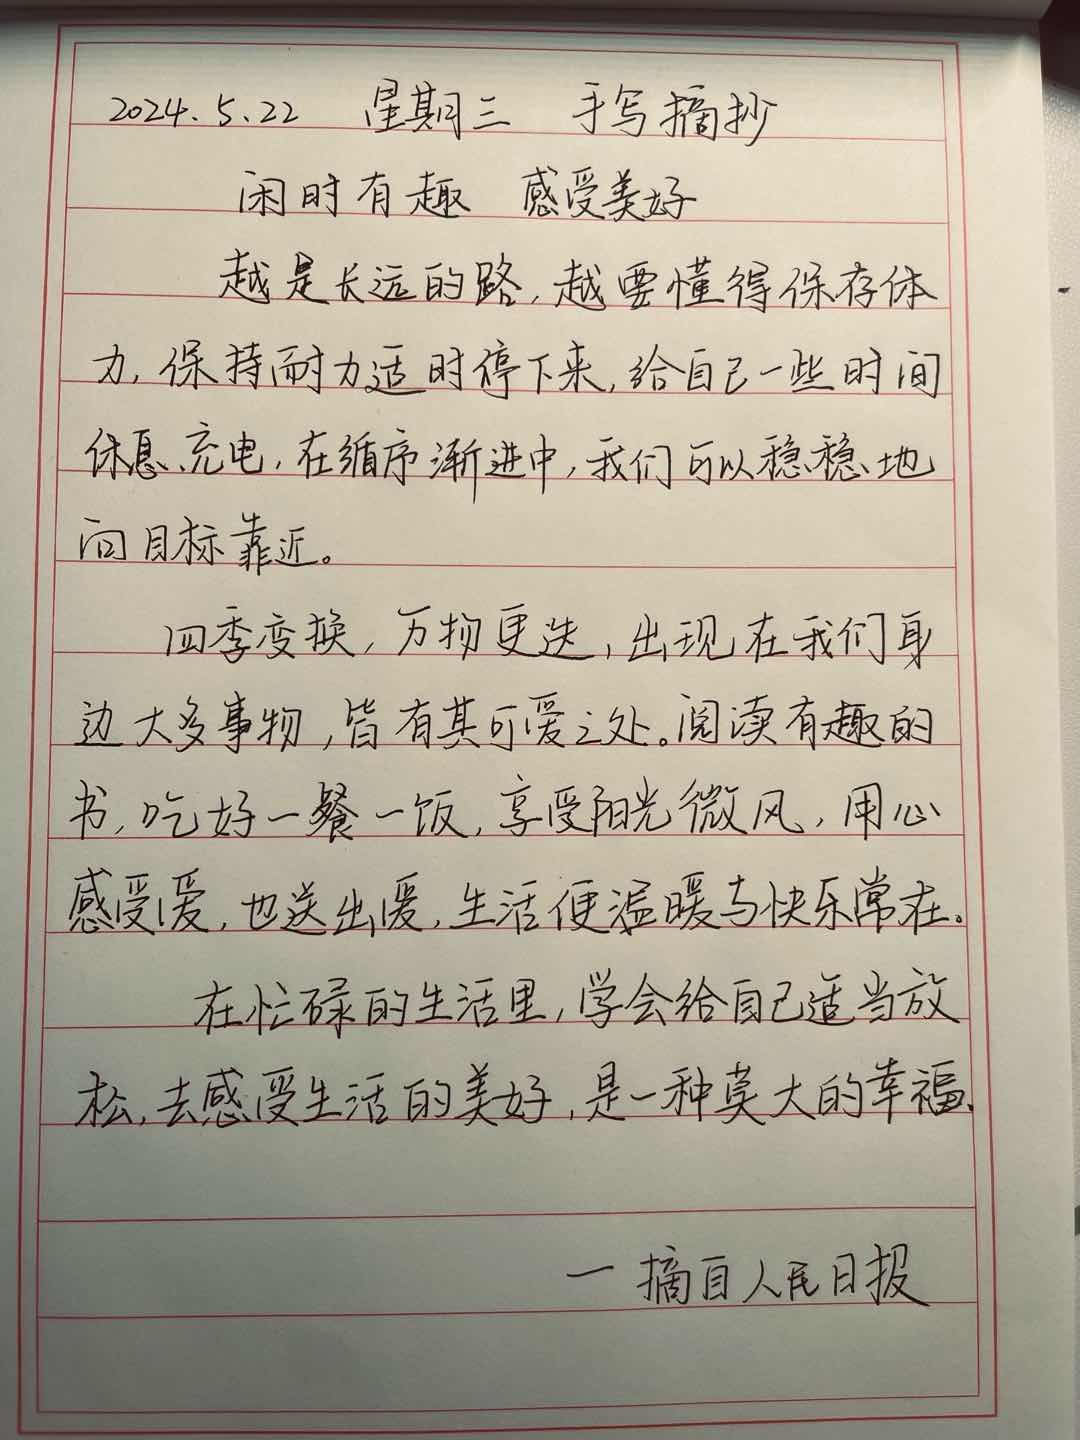 2024.5.22 星期三 手写摘抄
闲时有趣 感受美好
越是长远的路,越要懂得保存体
力,保持耐力适时停下来,给自己一些时间
休息、充电,在循序渐进中,我们可以稳稳地
向目标靠近。
四季变换,万物更迭,出现在我们身
边大多事物,皆有其可爱之处。阅读有趣的
书,吃好一餐一饭,享受阳光微风,用心
感受爱,也送出暖,生活便温暖与快乐常在。
在忙碌的生活里,学会给自己适当放
松,去感受生活的美好,是一种莫大的幸福.
一摘自人民日报